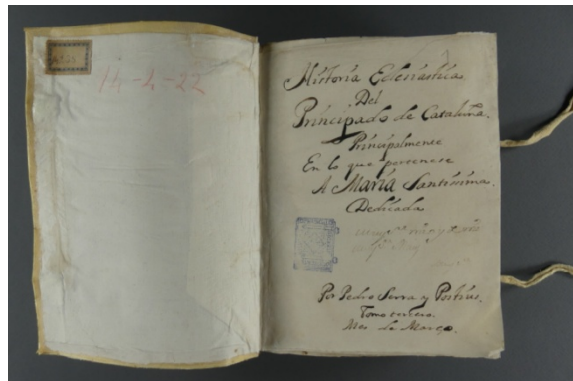 14-4-22
Historia Eclesiastica
Del
Principado de Cataluña.
Principalmente
En lo que pertenese
A Maria Santissima.
Dedicada
Por Pedro Serra y Postius.
Tomo tercero.
Mes de Março.